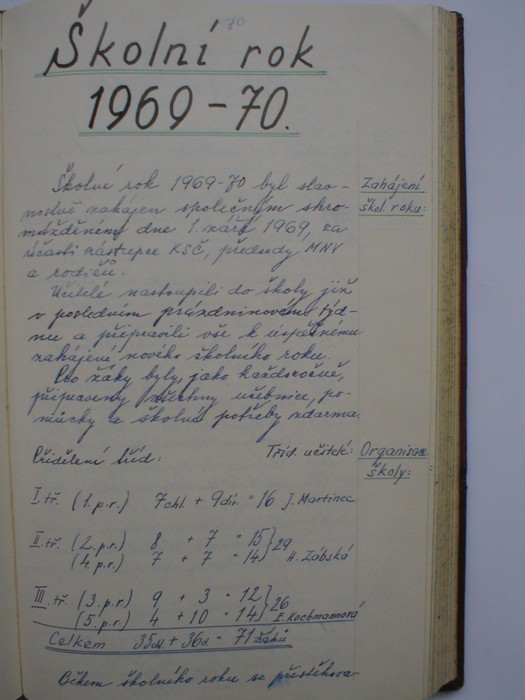 70
Školní rok
1969-70.
Školní rok 1969-70 byl slav-
nostně zahájen společným shro-
mážděním dne 1. září 1969, za
účasti zástupce KSČ, předsedy MNV
a rodičů.
Zahájení
škol. roku:
Učitelé nastoupili do školy již
v posledním prázdninovém týd-
nu a připravili vše k úspěšnému
zahájení nového školního roku.
Pro žáky byly, jako každoročně,
připraveny všechny učebnice, po-
můcky a školní potřeby zdarma.
Přidělení tříd: Tříd. učitelé:
Organisace
školy:
I. tř. (1.p.r.) 7chl. + 9dív. = 16 J. Martinec
II. tř. (2.p.r.) 8 + 7 = 15} 29
(4.p.r.) 7 + 7 = 14 H. Zábská
III. tř. (3.p.r.) 9 + 3 = 12} 26
(5.p.r.) 4 + 10 = 14 E. Kochmannová
Celkem 35ch + 36d = 71 žáků
Během školního roku se přistěhova-